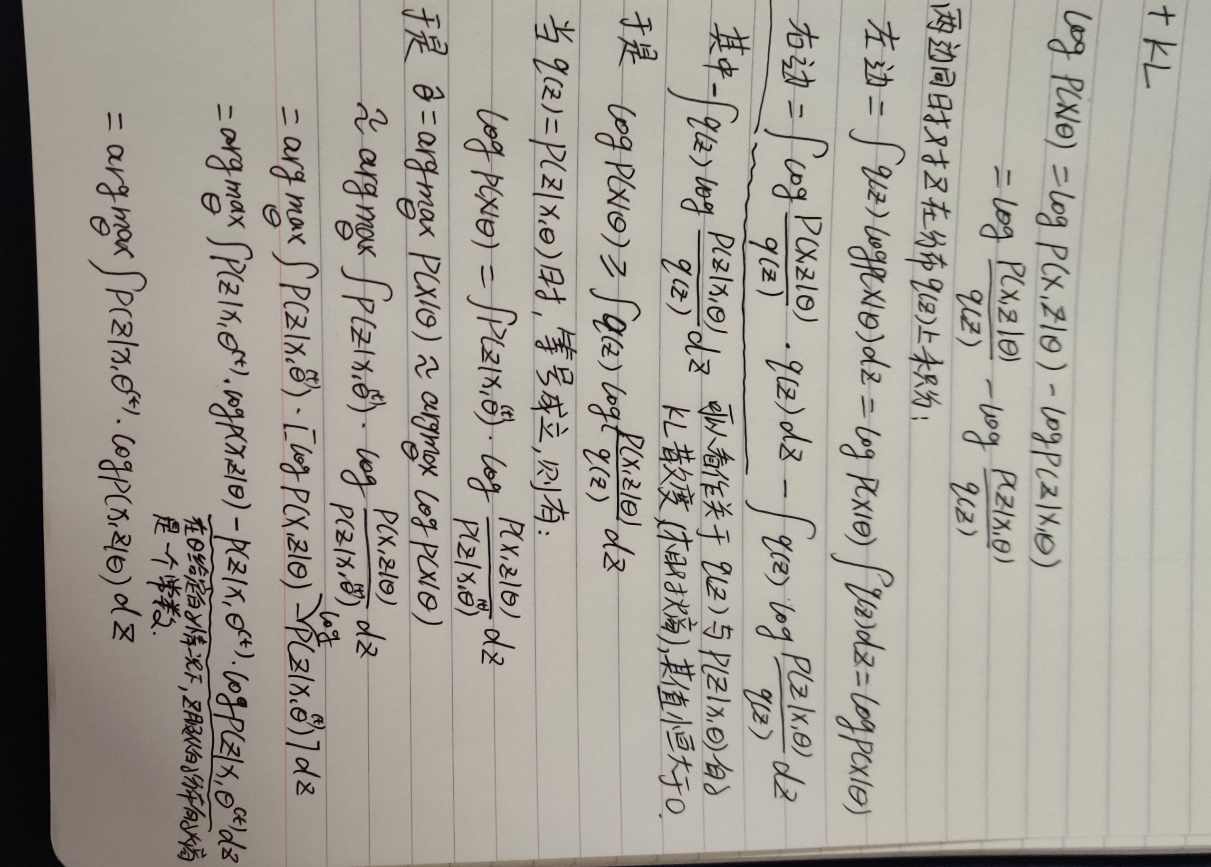 + KL
log P(X|θ) = log P(X,Z|θ) - log P(Z|X,θ)
= log P(X,Z|θ)/q(Z) - log P(Z|X,θ)/q(Z)
两边同时对Z在分布q(Z)上求积分:
左边 = ∫q(Z) log P(X|θ)dZ = log P(X|θ) ∫q(Z)dZ = log P(X|θ)
右边 = ∫log P(X,Z|θ)/q(Z) · q(Z)dZ - ∫q(Z) · log P(Z|X,θ)/q(Z) dZ
其中 -∫q(Z) log P(Z|X,θ)/q(Z) dZ 可以看作关于 q(Z) 与 P(Z|X,θ) 的
KL散度(相对熵), 其值恒大于0.
于是 log P(X|θ) ≥ ∫q(Z) log P(X,Z|θ)/q(Z) dZ
当 q(Z) = P(Z|X,θ) 时, 等号成立, 则有:
log P(X|θ) = ∫P(Z|X,θ^(t)) · log P(X,Z|θ)/P(Z|X,θ^(t)) dZ
于是 θ̂ = arg max_θ P(X|θ) ≈ argmax_θ log P(X|θ)
≈ arg max_θ ∫P(Z|X,θ^(t)) · log P(X,Z|θ)/P(Z|X,θ^(t)) dZ
= arg max_θ ∫P(Z|X,θ^(t)) · [log P(X,Z|θ) - log P(Z|X,θ^(t))] dZ
= arg max_θ ∫P(Z|X,θ^(t)) · log P(X,Z|θ) - P(Z|X,θ^(t)) · log P(Z|X,θ^(t)) dZ
在θ给定的情况下, Z服从的分布的熵
是一个常数.
= arg max_θ ∫P(Z|X,θ^(t)) · log P(X,Z|θ) dZ